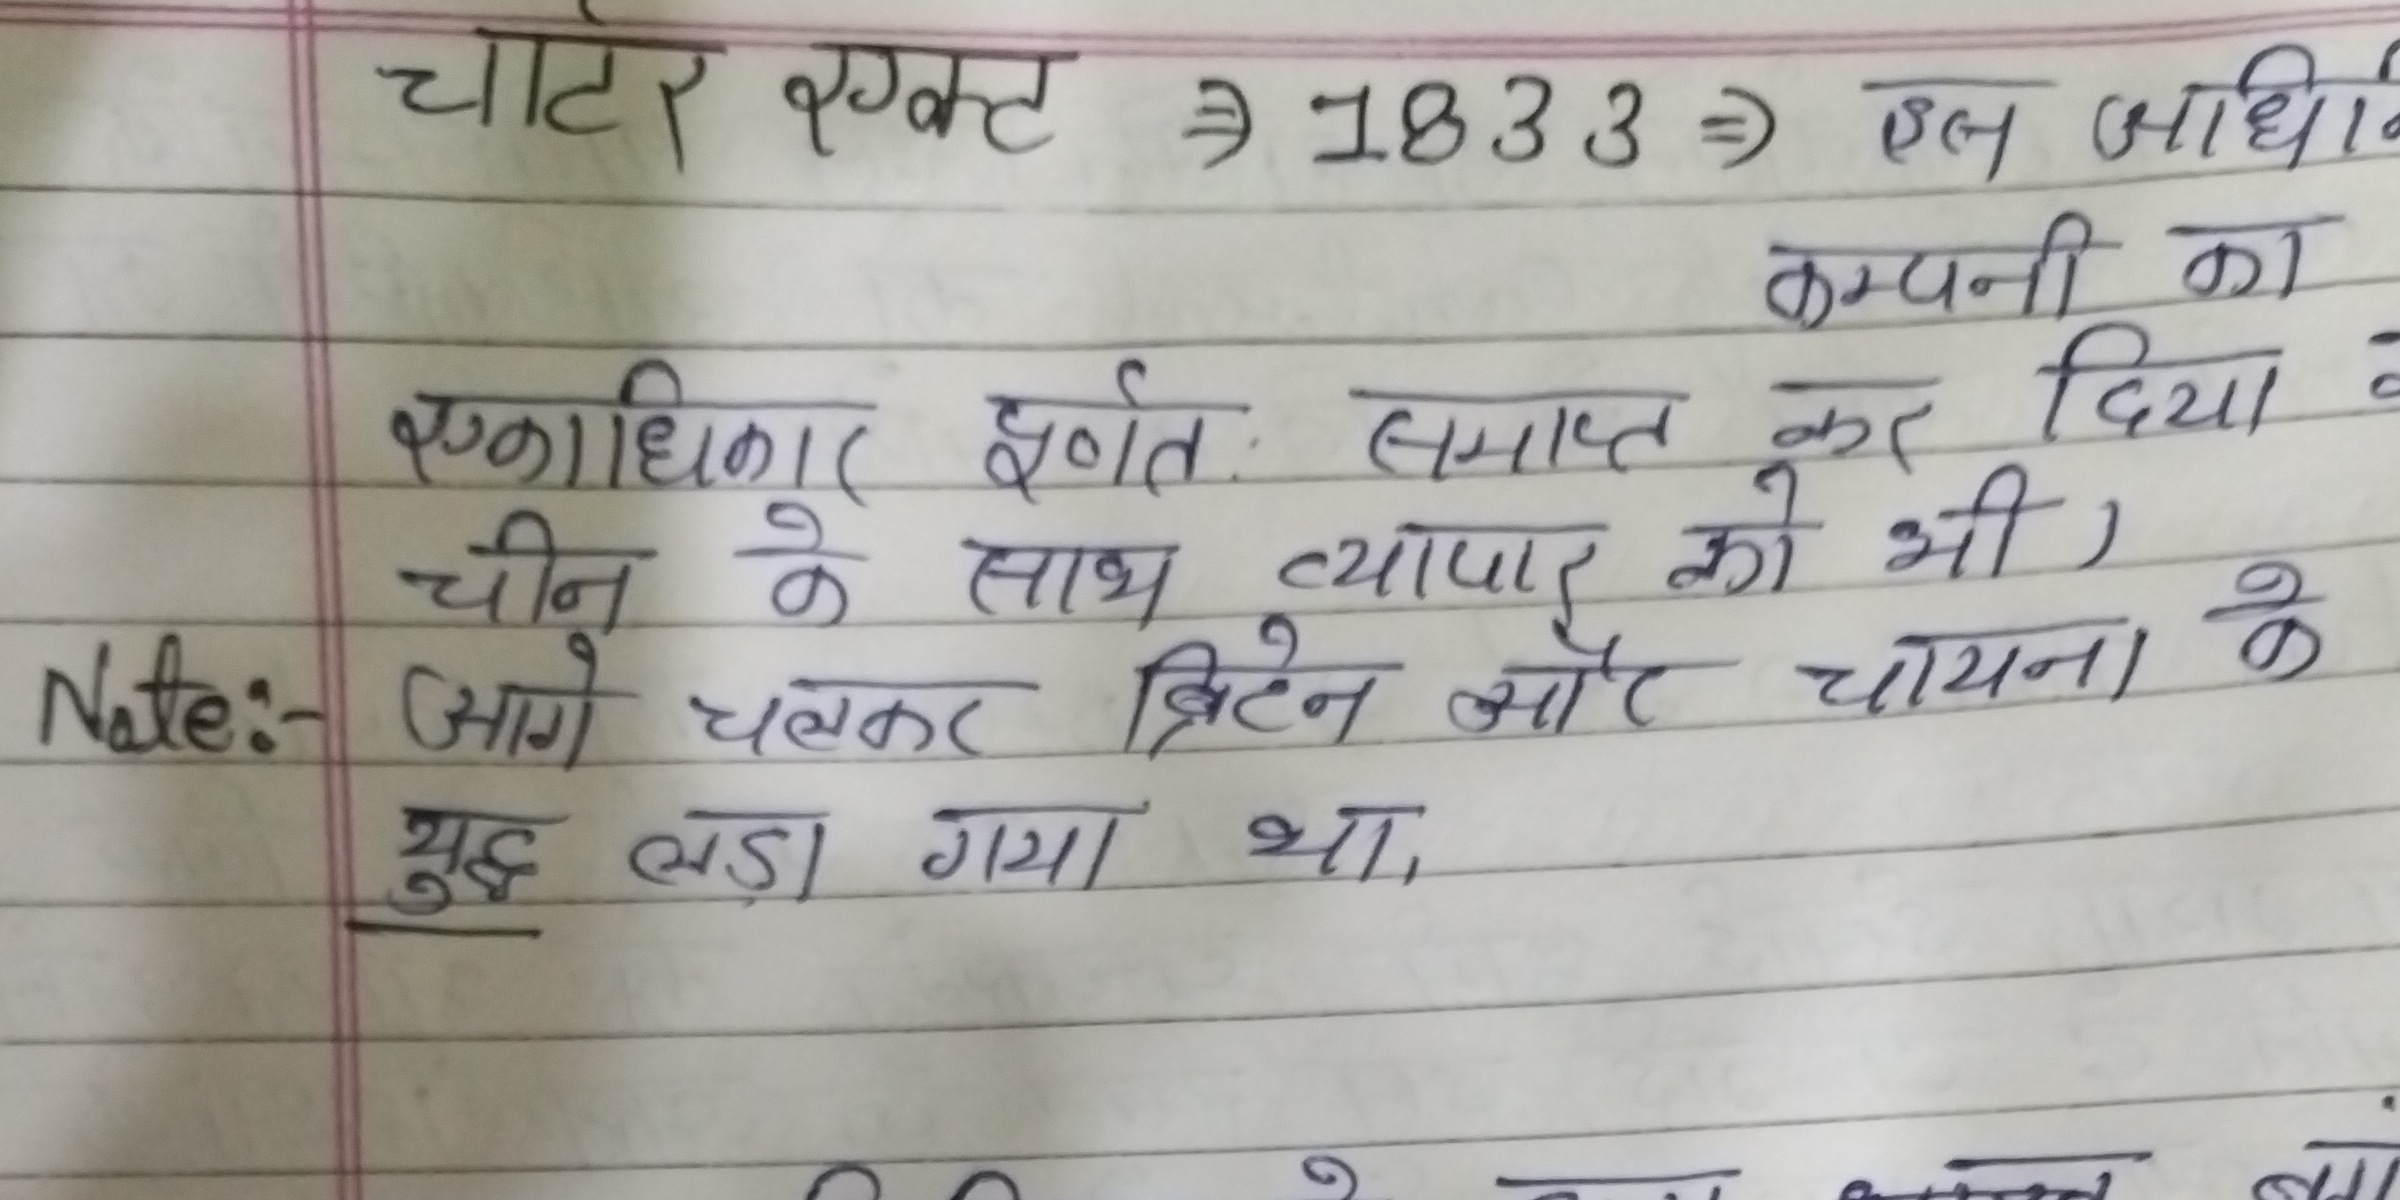 चार्टर एक्ट ⇒ 1833 ⇒ इस
कम्पनी का
एकाधिकार पूर्णत: समाप्त कर दिया
चीन के साथ व्यापार को भी।
Note:- आगे चलकर ब्रिटेन और चायना के
युद्ध लड़ा गया था,